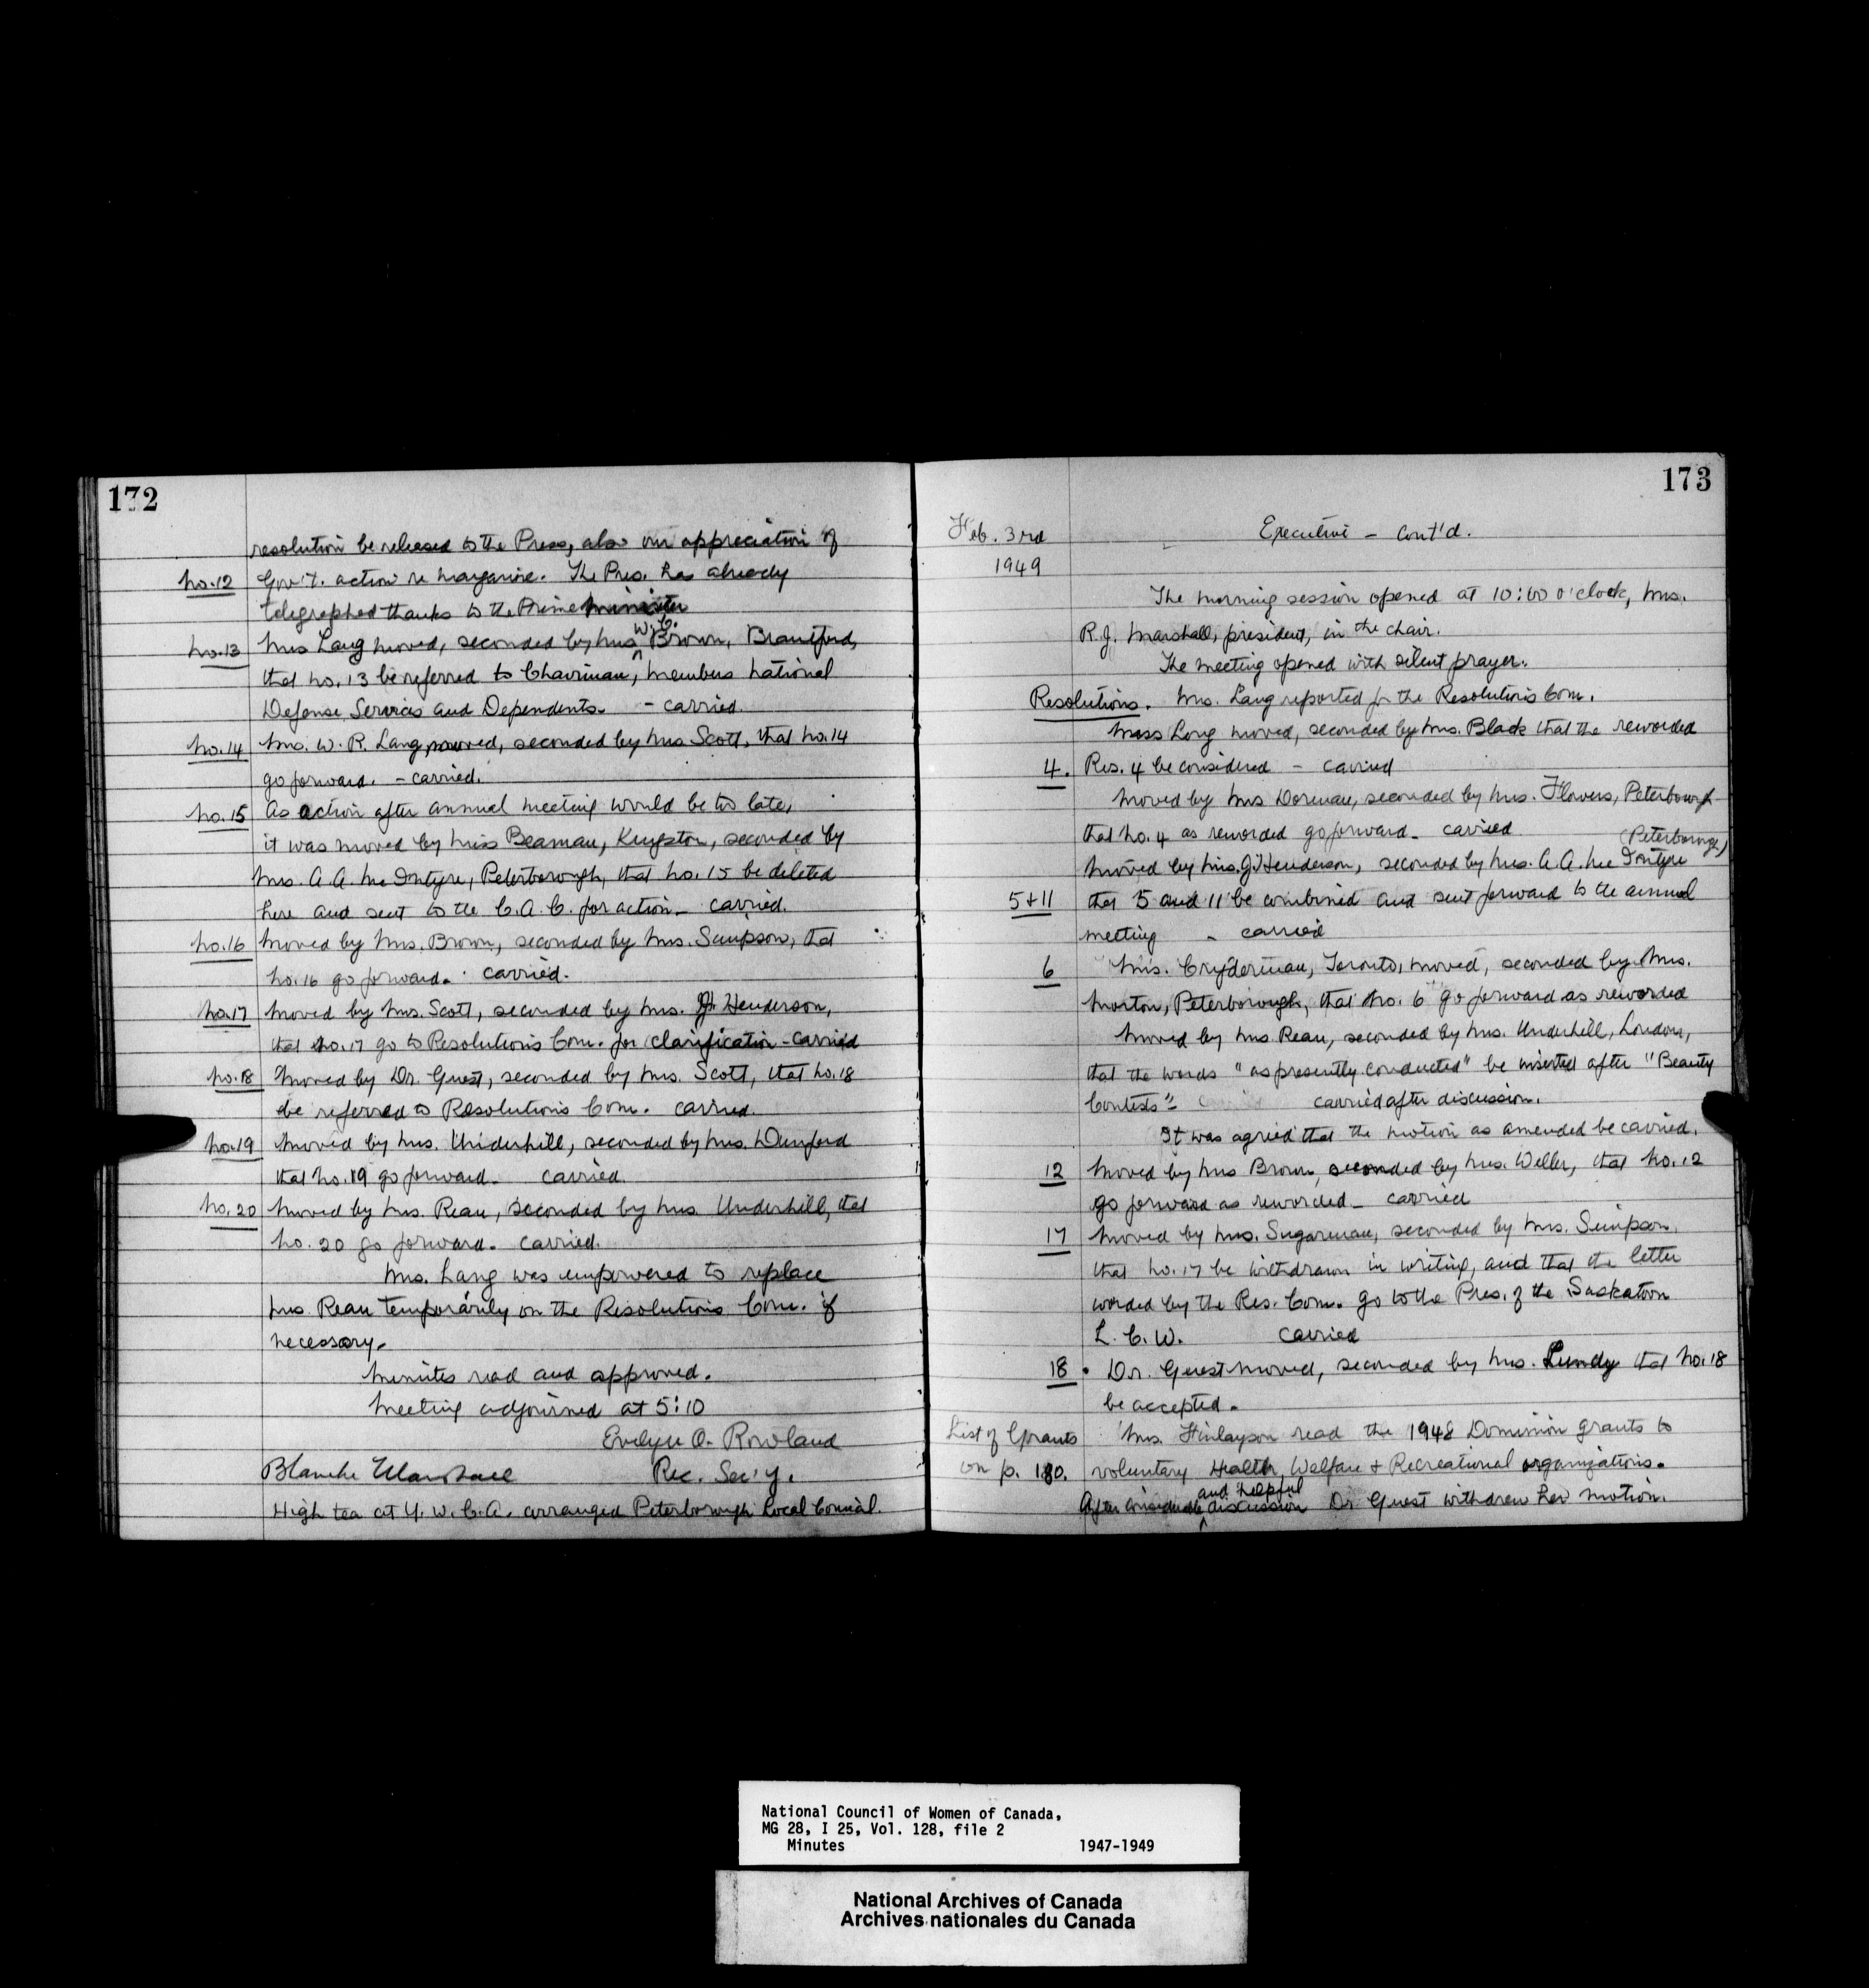 172
resolution be released to the Press, also our appreciation of
No. 12 Gov't. action re margarine. The Pres. has already
telegraphed thanks to the Prime Minister
No. 13 Mrs Lang moved, seconded by Mrs W. C. Brown, Brantford,
that No. 13 be referred to Chairman, members National
Defense Services and Dependents. - carried.
No. 14 Mrs. W. R. Lang moved, seconded by Mrs Scott, that No. 14
go forward. - carried.
No. 15 As action after annual meeting would be too late,
it was moved by Miss Beaman, Kingston, seconded by
Mrs. A. A. Mc Intyre, Peterborough, that No. 15 be deleted
here and sent to the C.A.C. for action - carried.
No. 16 Moved by Mrs. Brown, seconded by Mrs. Simpson, that
No. 16 go forward. carried.
No. 17 Moved by Mrs. Scott, seconded by Mrs. G. Henderson,
that No. 17 go to Resolutions Com. for clarification - carried
No. 18 Moved by Dr. Guest, seconded by Mrs. Scott, that No. 18
be referred to Resolutions Com. carried.
No. 19 Moved by Mrs. Underhill, seconded by Mrs. Dunford
that No. 19 go forward - carried.
No. 20 Moved by Mrs. Reau, seconded by Mrs Underhill, that
No. 20 go forward. carried.
Mrs. Lang was empowered to replace
Mrs. Reau temporarily on the Resolutions Com. if
necessary.
Minutes read and approved.
Meeting adjourned at 5:10
Evelyn O. Rowland
Blanche Marshall Rec. Sec'y.
High tea at Y.W.C.A. arranged Peterborough Local Council.
173
Feb. 3rd Executive - Cont'd.
1949
The morning session opened at 10:00 o'clock, Mrs.
R.J. Marshall, president, in the chair.
The meeting opened with silent prayer.
Resolutions. Mrs. Lang reported for the Resolutions Com.
Miss Long moved, seconded by Mrs. Black that the reworded
4. Res. 4 be considered - carried
Moved by Mrs Dorman, seconded by Mrs. Flowers, Peterborough
that No. 4 as reworded go forward - carried
Moved by Mrs. G. Henderson, seconded by Mrs. A. A. Mc Intyre (Peterborough)
5+11 that 5 and 11 be combined and sent forward to the annual
meeting - carried
6 Mrs. Cryderman, Toronto, moved, seconded by Mrs.
Morton, Peterborough, that No. 6 go forward as reworded
Moved by Mrs Reau, seconded by Mrs. Underhill, London,
that the words "as presently conducted" be inserted after "Beauty
Contests" - carried after discussion.
It was agreed that the motion as amended be carried.
12 Moved by Mrs Brown, seconded by Mrs. Weller, that No. 12
go forward as reworded - carried
17 Moved by Mrs. Sugarman, seconded by Mrs. Simpson,
that No. 17 be withdrawn in writing, and that the letter
worded by the Res. Com. go to the Pres. of the Saskatoon
L. C. W. carried
18. Dr. Guest moved, seconded by Mrs. Lundy that No. 18
be accepted.
List of Grants Mrs. Finlayson read the 1948 Dominion grants to
on p. 180. voluntary Health, Welfare + Recreational organizations.
After considerable and helpful discussion Dr. Guest withdrew her motion.
National Council of Women of Canada,
MG 28, I 25, Vol. 128, file 2
Minutes 1947-1949
National Archives of Canada
Archives nationales du Canada